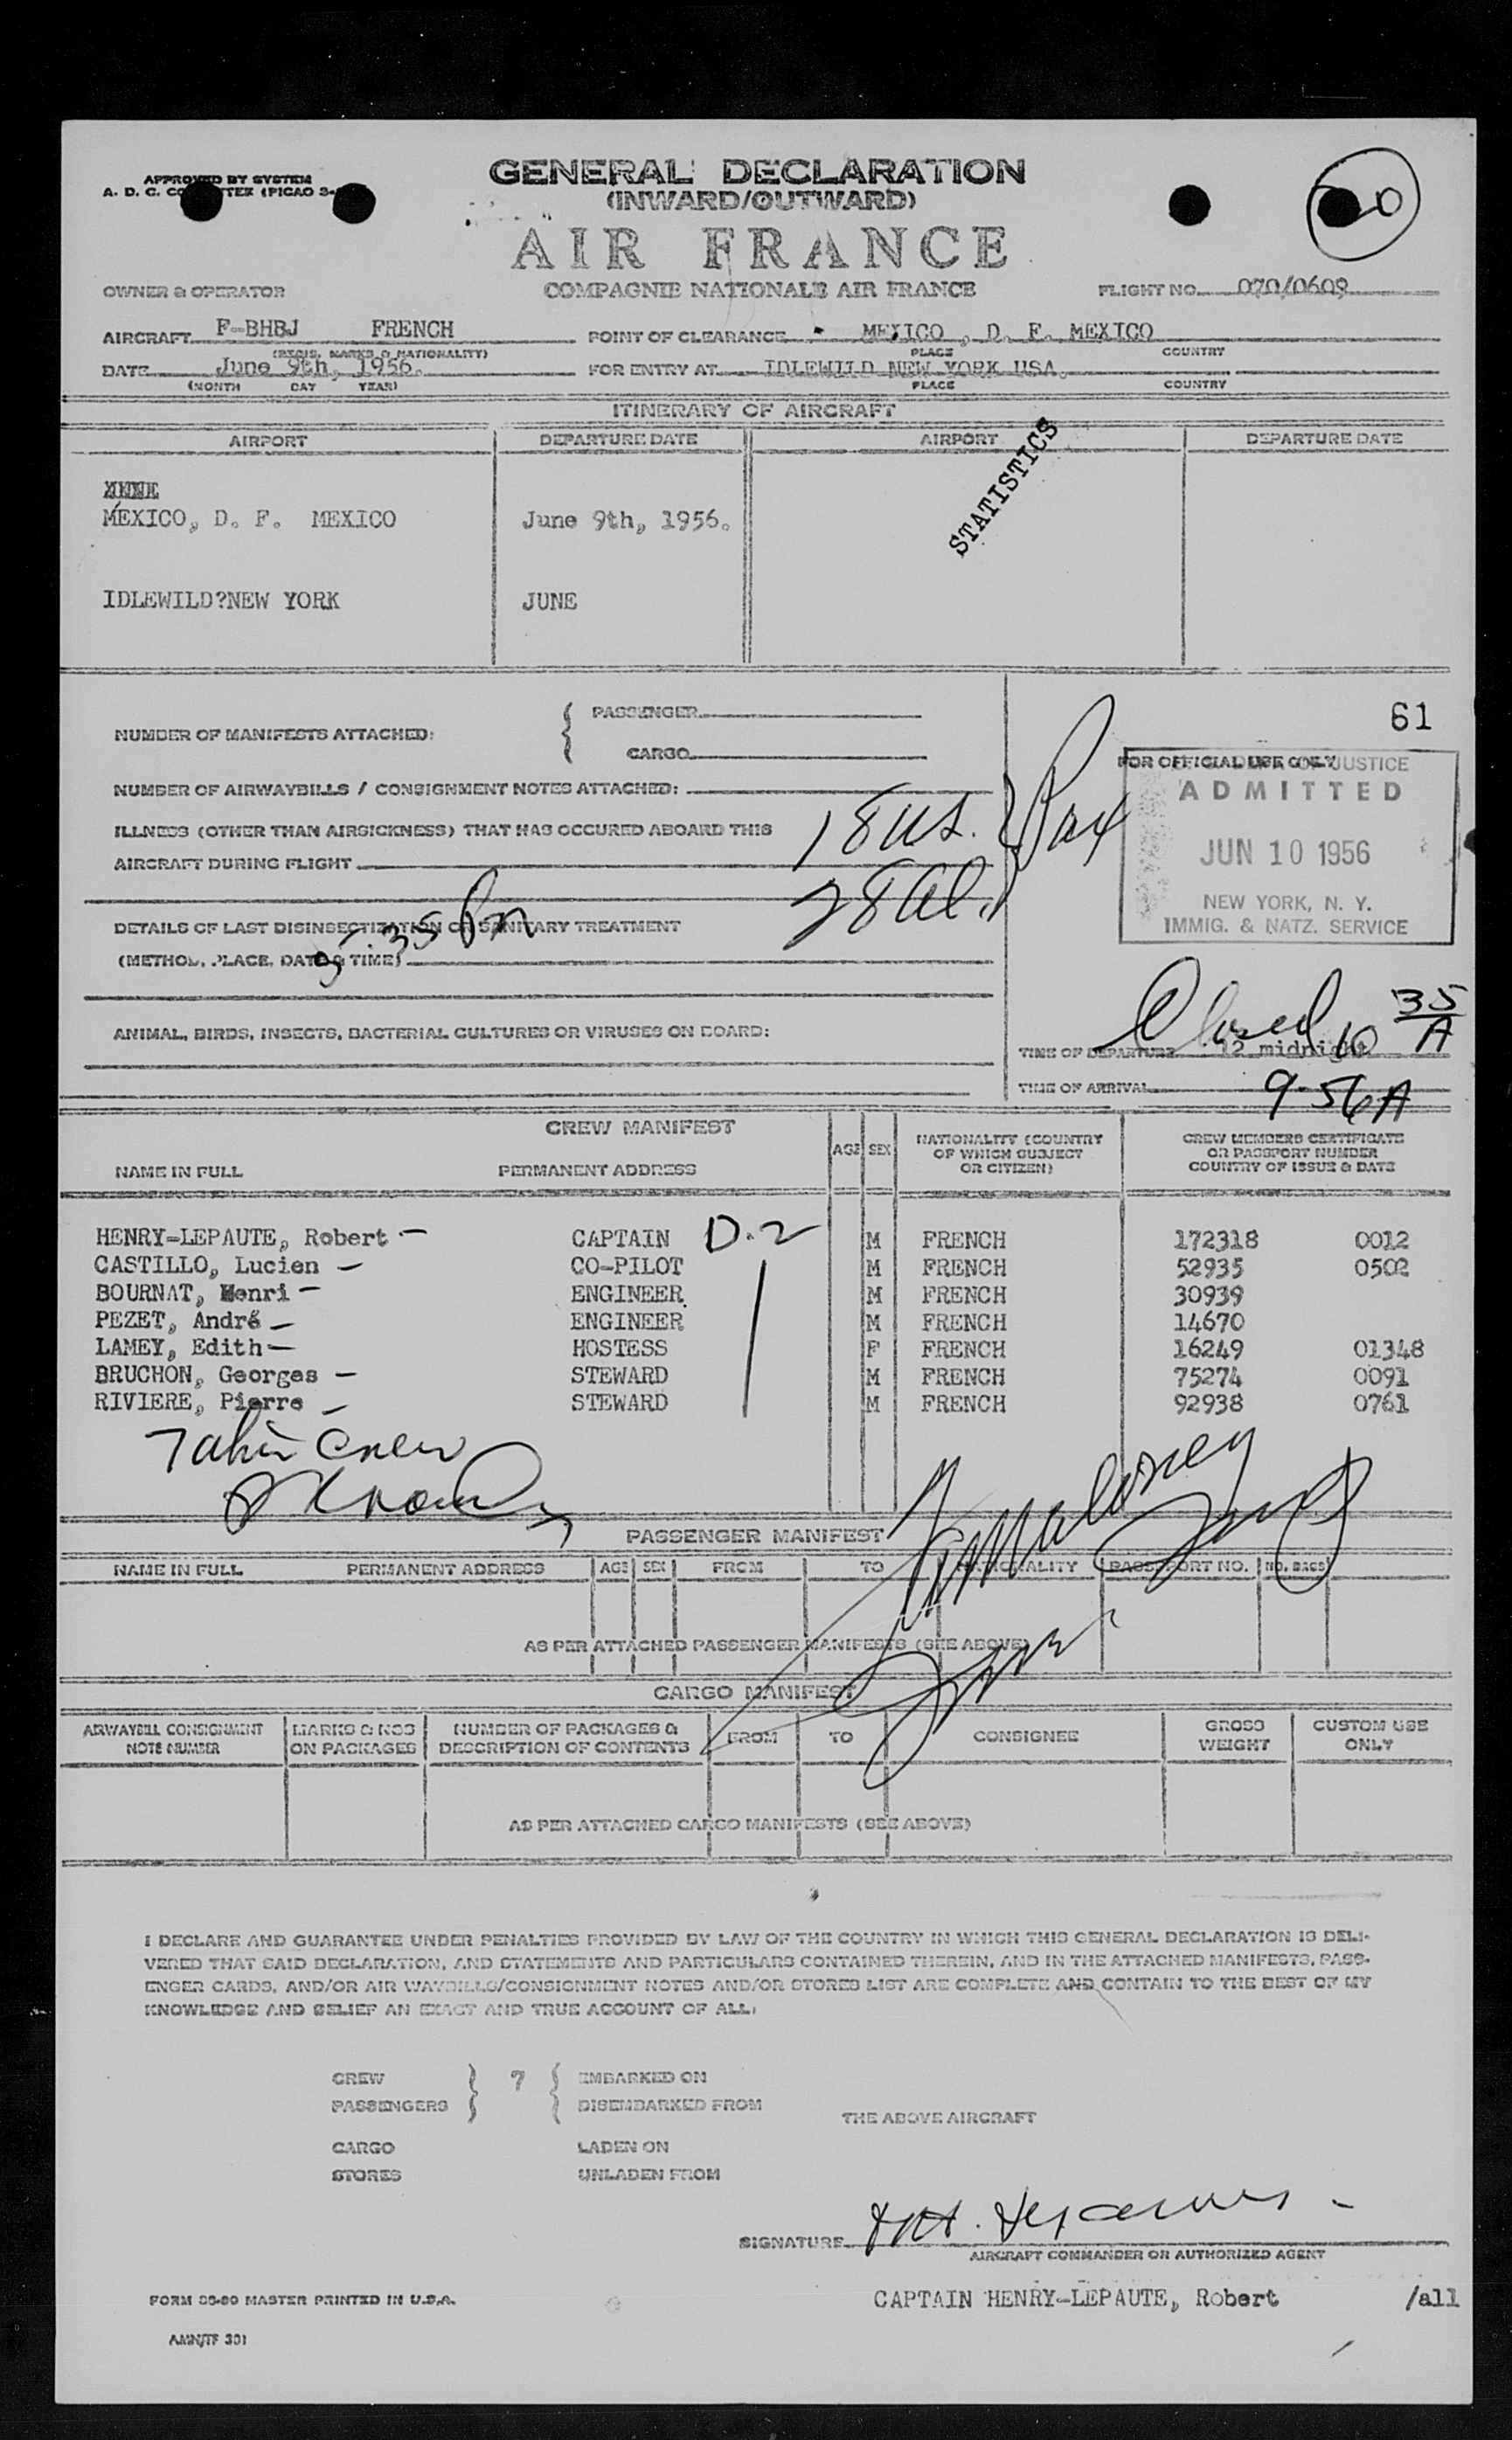 APPROVED BY SYSTEM
A. D. C. (PICAO 3-
GENERAL DECLARATION
(INWARD/OUTWARD)
AIR FRANCE
COMPAGNIE NATIONALE AIR FRANCE
OWNER & OPERATOR
FLIGHT NO. 070/0609
AIRCRAFT F-BHBJ FRENCH
(REGIS. MARKS & NATIONALITY)
POINT OF CLEARANCE MEXICO, D. F. MEXICO
PLACE COUNTRY
DATE June 9th, 1956.
(MONTH DAY YEAR)
FOR ENTRY AT IDLEWILD NEW YORK USA.
PLACE COUNTRY
ITINERARY OF AIRCRAFT
AIRPORT DEPARTURE DATE AIRPORT DEPARTURE DATE
STATISTICS
MEXICO, D. F. MEXICO June 9th, 1956.
IDLEWILD?NEW YORK JUNE
NUMBER OF MANIFESTS ATTACHED:
PASSENGER
CARGO
61
NUMBER OF AIRWAYBILLS / CONSIGNMENT NOTES ATTACHED:
ILLNESS (OTHER THAN AIRSICKNESS) THAT HAS OCCURED ABOARD THIS
AIRCRAFT DURING FLIGHT
18 US. Pax
28 Al.
FOR OFFICIAL USE ONLY JUSTICE
ADMITTED
JUN 10 1956
NEW YORK, N. Y.
IMMIG. & NATZ. SERVICE
DETAILS OF LAST DISINSECTIZATION OR SANITARY TREATMENT
(METHOD, PLACE, DATE & TIME)
5:35 Pm
ANIMAL, BIRDS, INSECTS, BACTERIAL CULTURES OR VIRUSES ON BOARD:
Closed 10 35/A
TIME OF DEPARTURE 12 midnight
TIME OF ARRIVAL 9-56 A
CREW MANIFEST
NAME IN FULL PERMANENT ADDRESS AGE SEX NATIONALITY (COUNTRY OF WHICH SUBJECT OR CITIZEN) CREW MEMBERS CERTIFICATE OR PASSPORT NUMBER COUNTRY OF ISSUE & DATE
HENRY-LEPAUTE, Robert - CAPTAIN D.2 M FRENCH 172318 0012
CASTILLO, Lucien - CO-PILOT M FRENCH 52935 0502
BOURNAT, Henri - ENGINEER M FRENCH 30939
PEZET, André - ENGINEER M FRENCH 14670
LAMEY, Edith - HOSTESS F FRENCH 16249 01348
BRUCHON, Georges - STEWARD M FRENCH 75274 0091
RIVIERE, Pierre - STEWARD M FRENCH 92938 0761
Crew
PASSENGER MANIFEST
NAME IN FULL PERMANENT ADDRESS AGE SEX FROM TO NATIONALITY PASSPORT NO. NO. BAGS
AS PER ATTACHED PASSENGER MANIFESTS (SEE ABOVE)
CARGO MANIFEST
AIRWAYBILL CONSIGNMENT NOTE NUMBER MARKS & NOS ON PACKAGES NUMBER OF PACKAGES & DESCRIPTION OF CONTENTS FROM TO CONSIGNEE GROSS WEIGHT CUSTOM USE ONLY
AS PER ATTACHED CARGO MANIFESTS (SEE ABOVE)
I DECLARE AND GUARANTEE UNDER PENALTIES PROVIDED BY LAW OF THE COUNTRY IN WHICH THIS GENERAL DECLARATION IS DELI-
VERED THAT SAID DECLARATION, AND STATEMENTS AND PARTICULARS CONTAINED THEREIN, AND IN THE ATTACHED MANIFESTS, PASS-
ENGER CARDS, AND/OR AIR WAYBILLS/CONSIGNMENT NOTES AND/OR STORES LIST ARE COMPLETE AND CONTAIN TO THE BEST OF MY
KNOWLEDGE AND BELIEF AN EXACT AND TRUE ACCOUNT OF ALL:
CREW 7 EMBARKED ON
PASSENGERS DISEMBARKED FROM
THE ABOVE AIRCRAFT
CARGO LADEN ON
STORES UNLADEN FROM
SIGNATURE
AIRCRAFT COMMANDER OR AUTHORIZED AGENT
CAPTAIN HENRY-LEPAUTE, Robert /all
FORM 35-80 MASTER PRINTED IN U.S.A.
AMN/TF 301